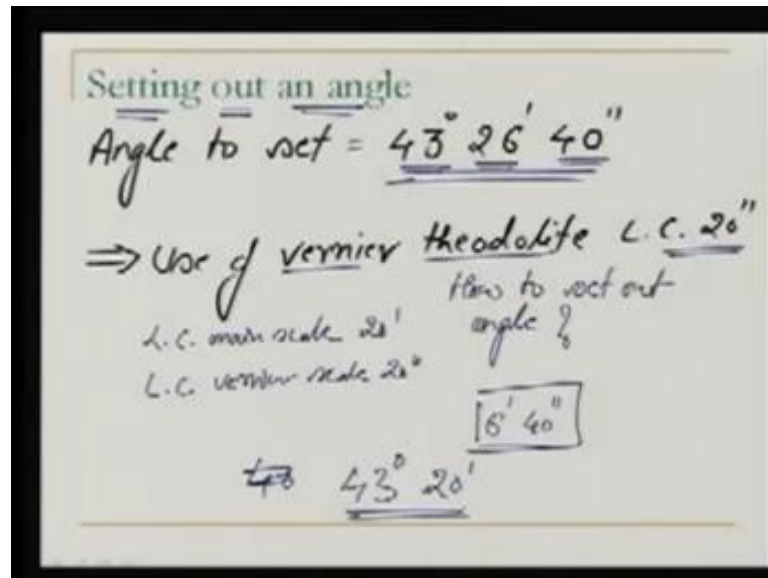 Setting out an angle
Angle to set = 43° 26' 40"
⇒ Use of vernier theodolite L.C. 20"
How to set out
angle ?
L.C. main scale 20'
L.C. vernier scale 20"
6' 40"
43° 20'